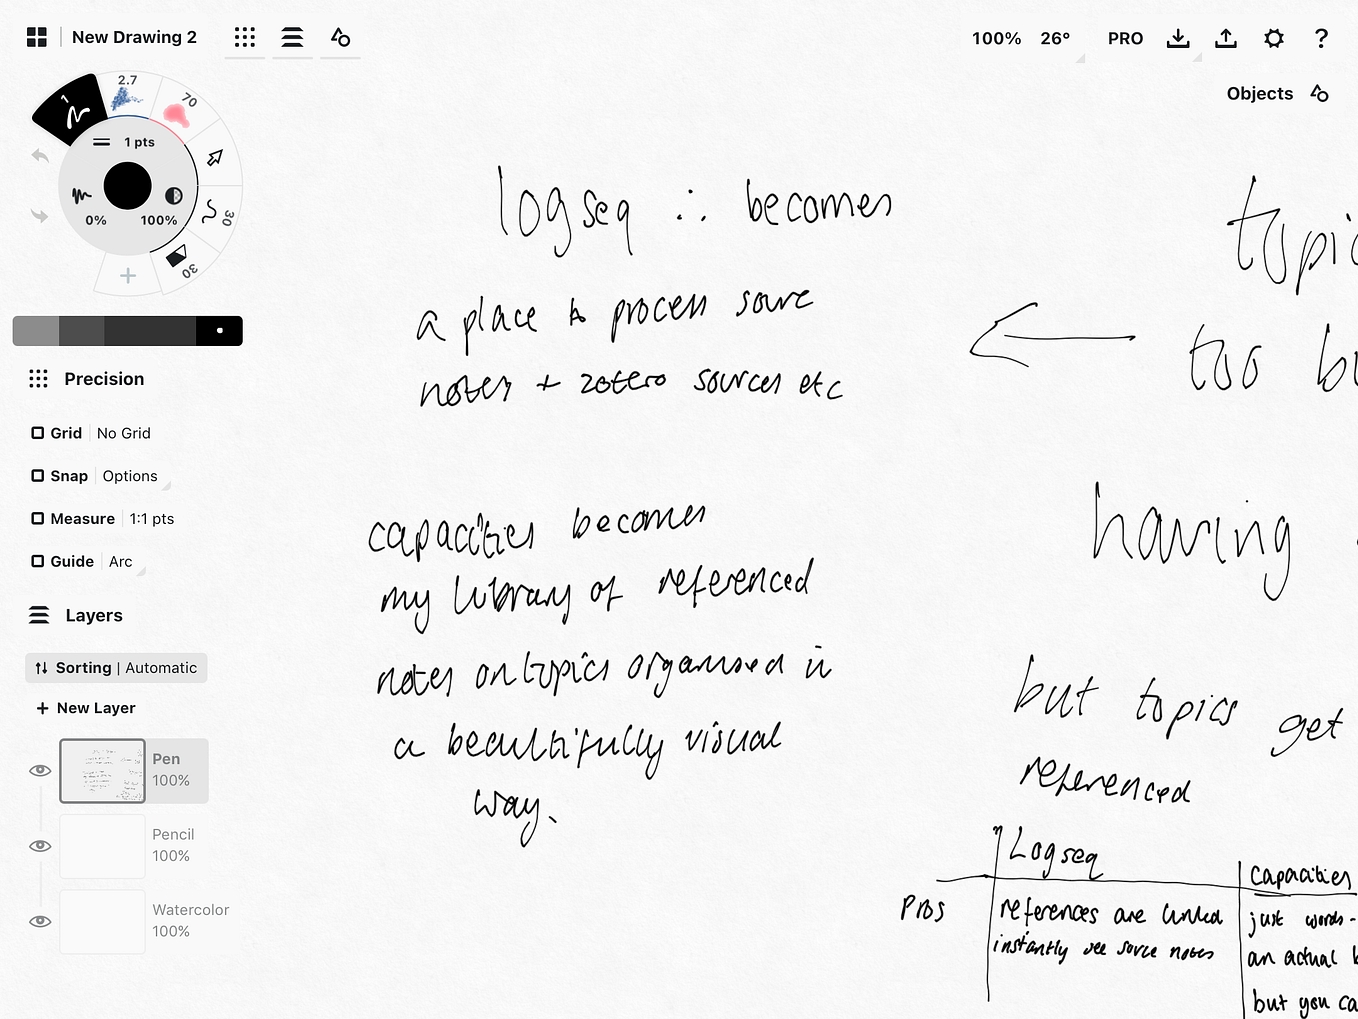 New Drawing 2
100% 26° PRO
Objects
2.7
70
1
1 pts
0% 100%
30
30
Precision
Grid No Grid
Snap Options
Measure 1:1 pts
Guide Arc
Layers
Sorting | Automatic
+ New Layer
Pen
100%
Pencil
100%
Watercolor
100%
logseq ∴ becomes
a place to process source
notes + zotero sources etc
capacities becomes
my library of referenced
notes on topics organised in
a beautifully visual
way.
topic
too bu
having
but topics get
referenced
Logseq
Capacities
Pros
references are linked
instantly see source notes
just words-
an actual b
but you ca